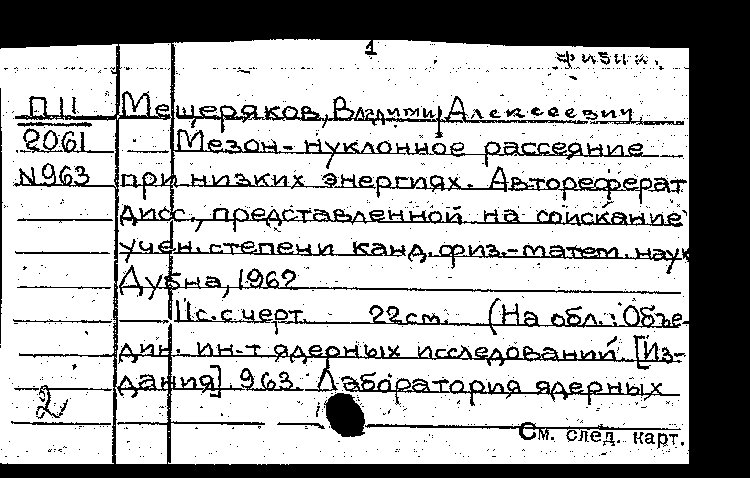 1
физик.
П11 Мещеряков, Владимир Алексеевич
2061 Мезон-нуклонное рассеяние
N963 при низких энергиях. Автореферат
дисс., представленной на соискание
учен. степени канд. физ.-матем. наук
Дубна, 1962
11с. с черт. 22см. (На обл.: Объе-
дин. ин-т ядерных исследований. [Из-
дания] 963. Лаборатория ядерных
2
См. след. карт.